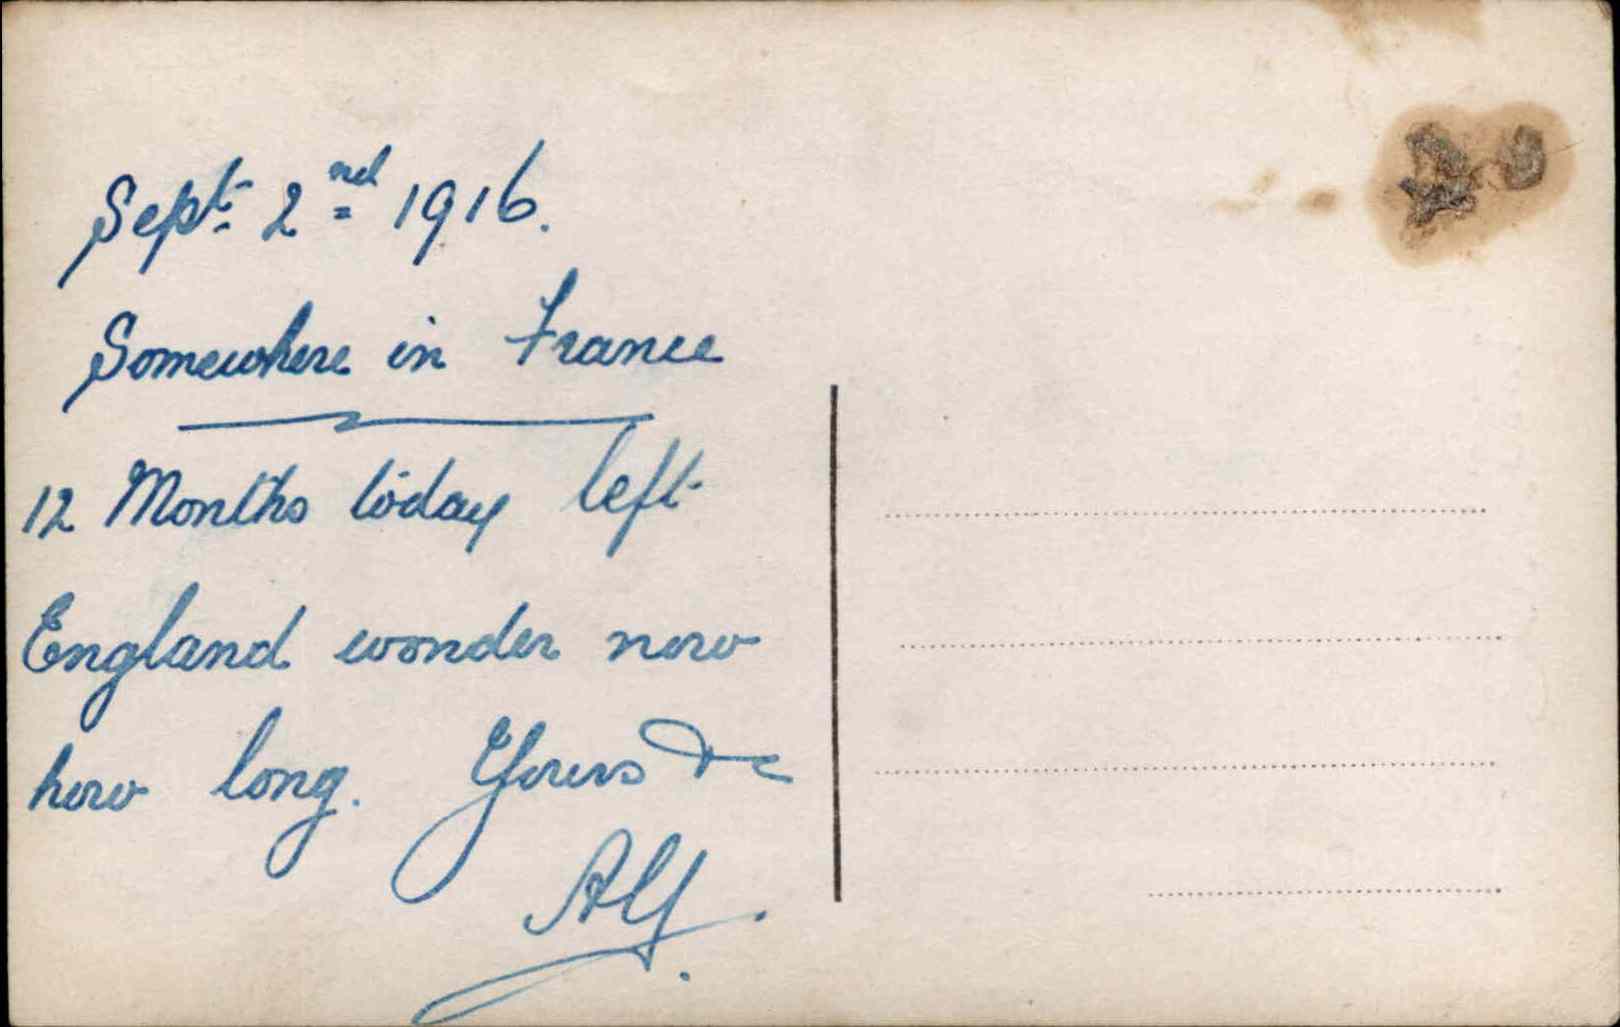 Sept. 2nd 1916.
Somewhere in France
12 Months today left
England wonder now
how long. Yours &c
Alf.